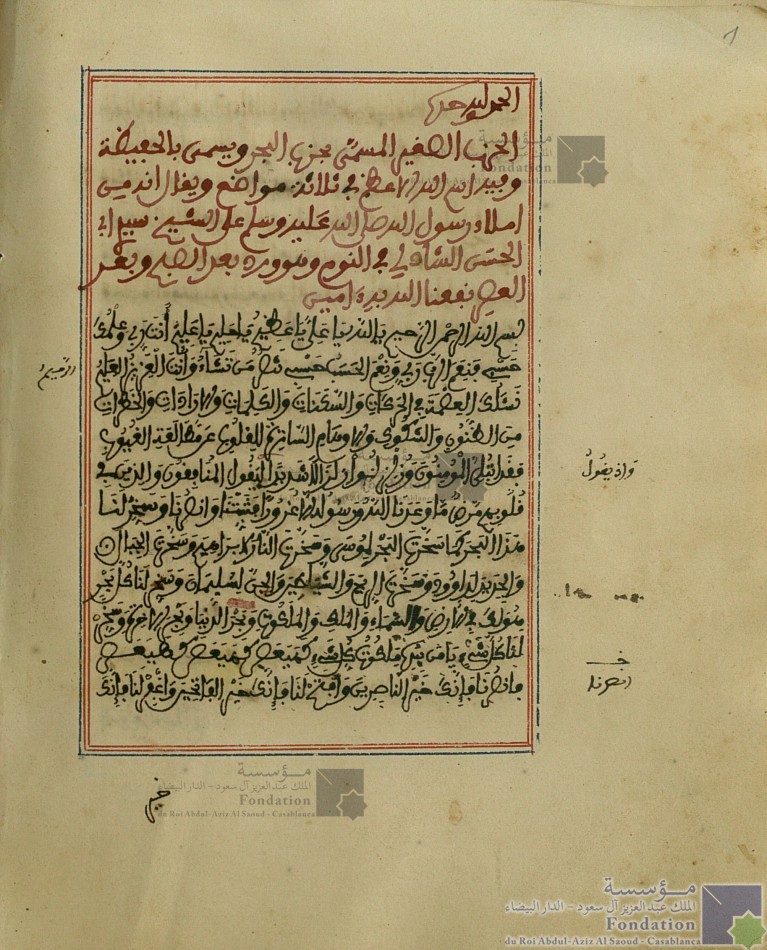 الحمد لله وحده
الحزب الصغير المسمى بحزب البحر ويسمى بالحفيظة
وفيه اسم الله الاعظم في ثلاثة مواضع ويقال انه من
املاء رسول الله صلى الله عليه وسلم على الشيخ سيدي ابي
الحسن الشاذلي في النوم ووورده بعد الصبح وبعد
العصر نفعنا الله به امين
بسم الله الرحمن الرحيم يا الله يا علي يا عظيم يا حليم يا عليم أنت ربي وعلمك
حسبي فنعم الرب ربي ونعم الحسب حسبي تنصر من تشاء وأنت العزيز
نسئلك العصمة في الحركات والسكنات والكلمات والارادات والخطرات
من الظنون والشكوك والاوهام الساترة للقلوب عن مطالعة الغيوب
فقد ابتلي المومنون وزلزلوا زلزالا شديدا ليقول المنافقون والذين في
قلوبهم مرض ما وعدنا الله ورسوله الا غرورا فثبتنا وانصرنا وسخر لنا
هذا البحر كما سخرت البحر لموسى وسخرت النار لابراهيم وسخرت الجبال
والحديد لداوود وسخرت الريح والشياطين والجن لسليمان وسخر لنا كل بحر
هو لك في الارض والسماء والملك والملكوت وبحر الدنيا وبحر الاخرة وسخر
لنا كل شيء يا من بيده ملكوت كل شيء كهيعص كهيعص كهيعص
انصرنا فإنك خير الناصرين وافتح لنا فإنك خير الفاتحين واغفر لنا فإنك
خير
الرحيم
وإذ يقول
انصرنا
مؤسسة
الملك عبد العزيز آل سعود - الدار البيضاء
Fondation
du Roi Abdul-Aziz Al Saoud - Casablanca
مؤسسة
الملك عبد العزيز آل سعود - الدار البيضاء
Fondation
du Roi Abdul-Aziz Al Saoud - Casablanca